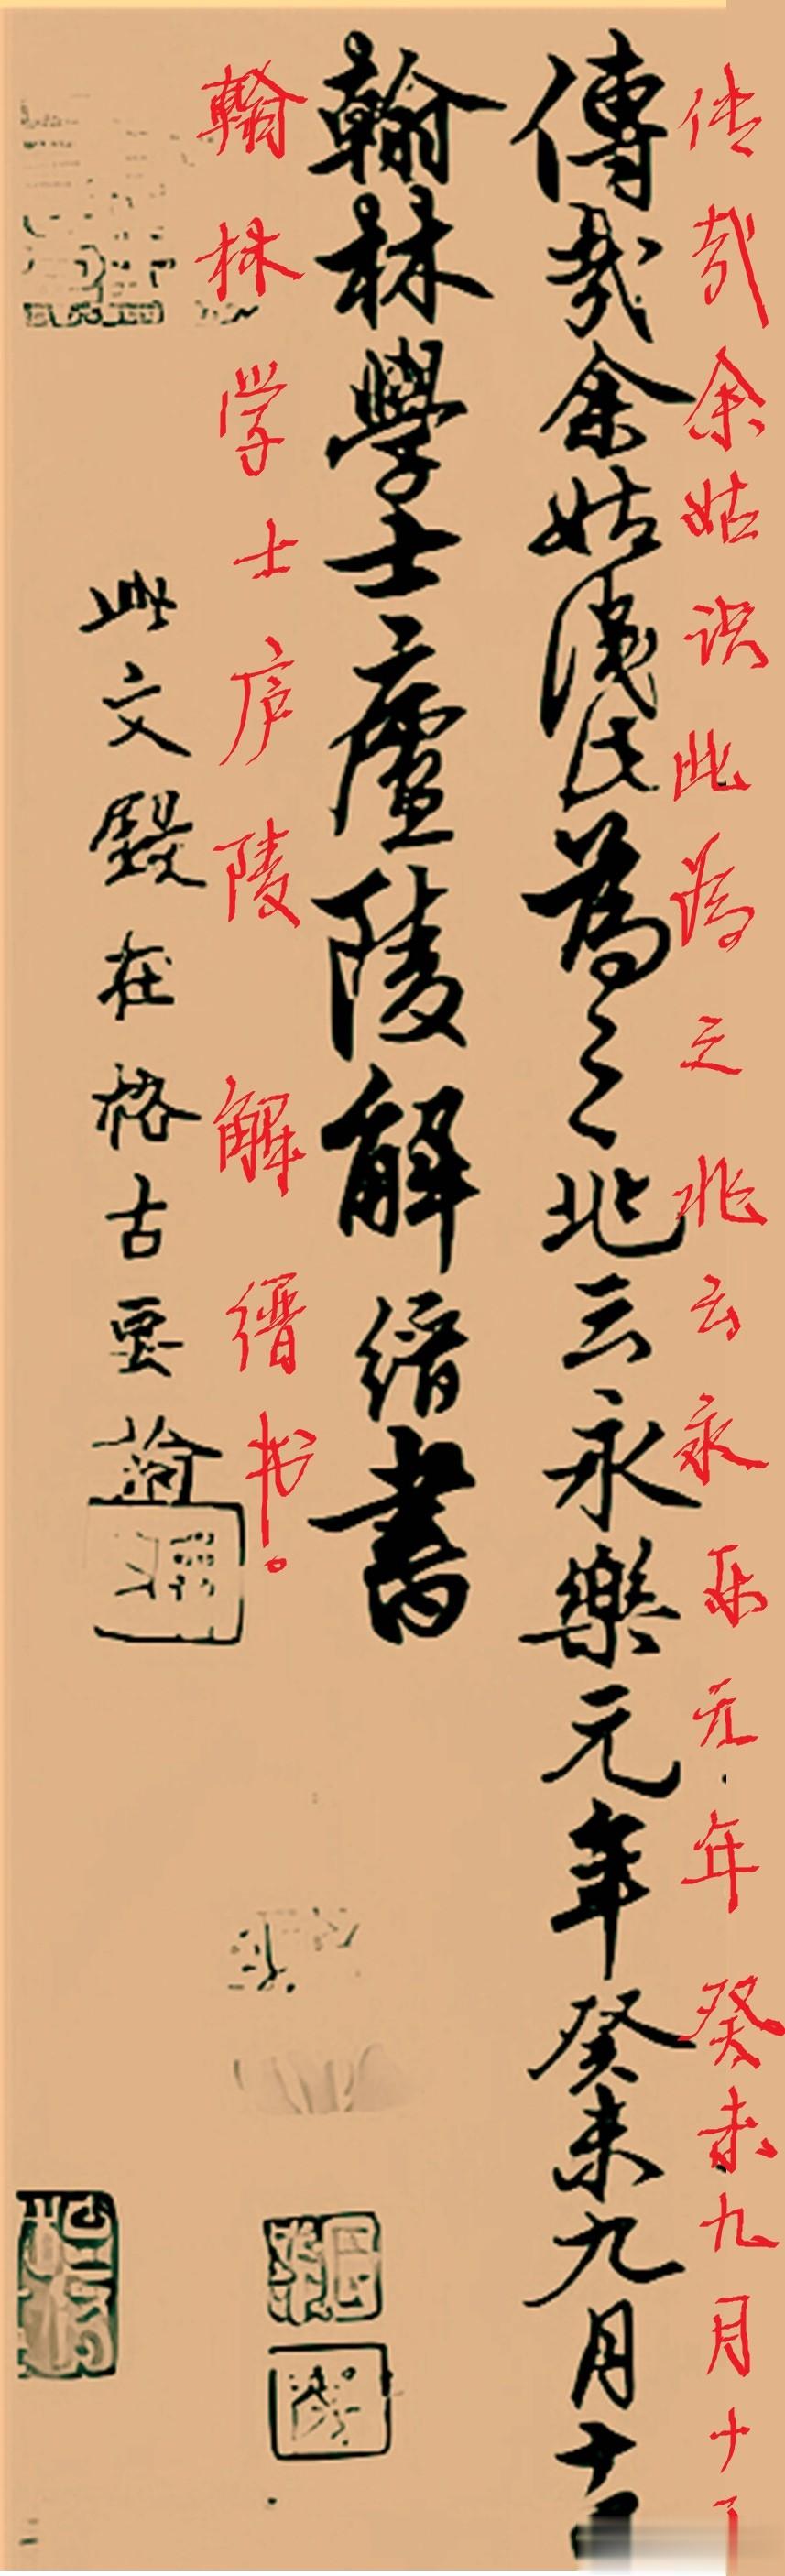 传哉余姑识此为之兆云永乐元年癸未九月十
傳哉余姑識此為之兆云永樂元年癸未九月十
翰林學士廬陵解縉書
翰林学士庐陵解缙书。
此文在格古要論